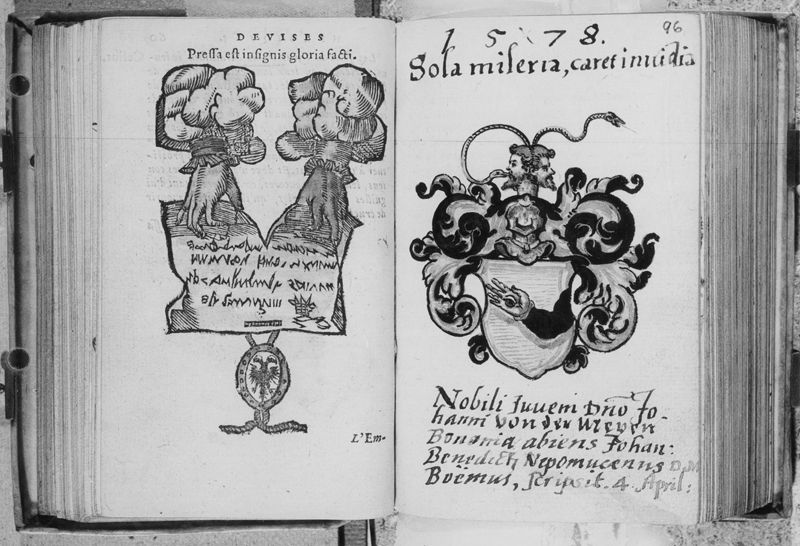 DEVISES
Pressa est insignis gloria facti.
L'Em-
96
1578.
Sola miseria, caret inuidia
Nobili Juueni Dño Jo-
hanni von der Meven
Bononia abiens Johan:
Benedich Nepomucenus D.M
Boëmus, scripsit. 4. April: